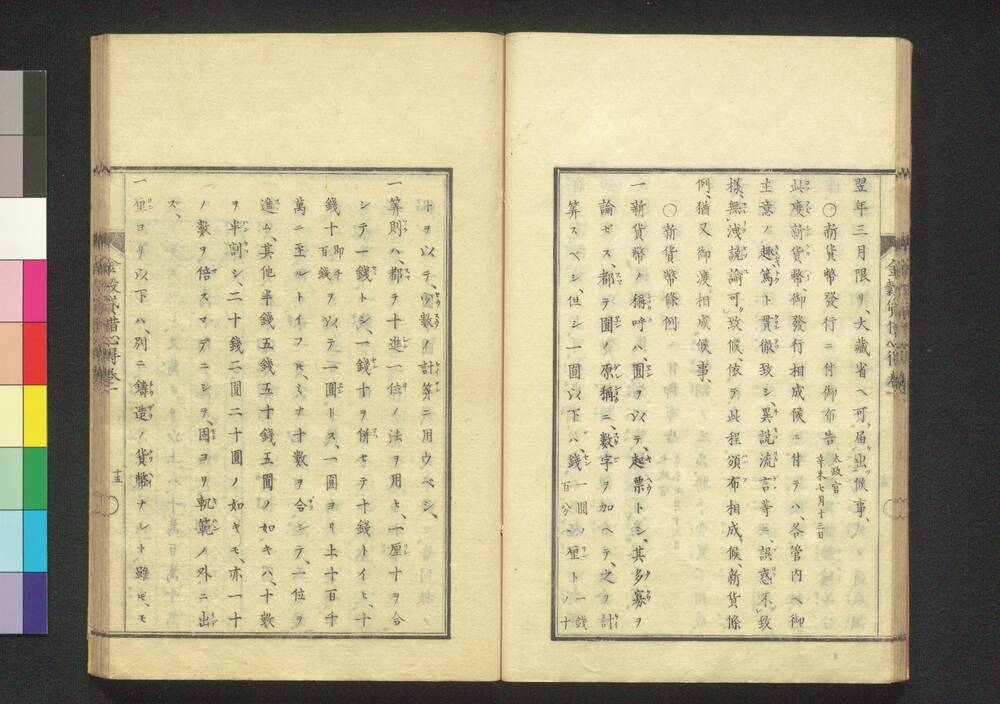 翌年三月限リ、大藏省ヘ可届出候事、
〇新貨幣發行ニ付御布告 太政官 辛未七月十三日
此度新貨幣、御發行相成候ニ付テハ、各管内ヘ御
主意ノ趣篤ト貫徹致シ、異説流言等ニ、誤惑不致
樣、無洩説諭可致候、依テ此程頒布相成候、新貨條
例、猶又御渡相成候事、
〇新貨幣條例
一新貨幣ノ稱呼ハ、圓ヲ以テ、起票トシ、其多寡ヲ
論ゼス、都テ圓ノ原稱ニ、數字ヲ加ヘテ、之ヲ計
算スベシ、但シ一圓以下ハ、錢 一圓ノ百分ノ一 厘 一錢ノ十
トヲ以テ、少數ノ計算ニ用ウベシ、
一算則ハ、都テ十進一位ノ法ヲ用ヒ、一厘十ヲ合
シテ一錢トシ、一錢十ヲ併セテ十錢トイヒ、十
錢十 即チ百錢 ヲ以テ一圓トス、一圓ヨリ上十百千
萬ニ至ルトイフ𪜈、ミナ十數ヲ合シテ、一位ヲ
進ム、其他半錢五錢五十錢五圓ノ如キハ、十數
ヲ半割シ、二十錢二圓二十圓ノ如キモ、亦一十
ノ數ヲ倍スマデニシテ、固ヨリ軌範ノ外ニ出
ス、
一厘ヨリ以下ハ、別ニ鑄造ノ貨幣ナシト雖𪜈、モ
金穀貸借心得卷一
十五